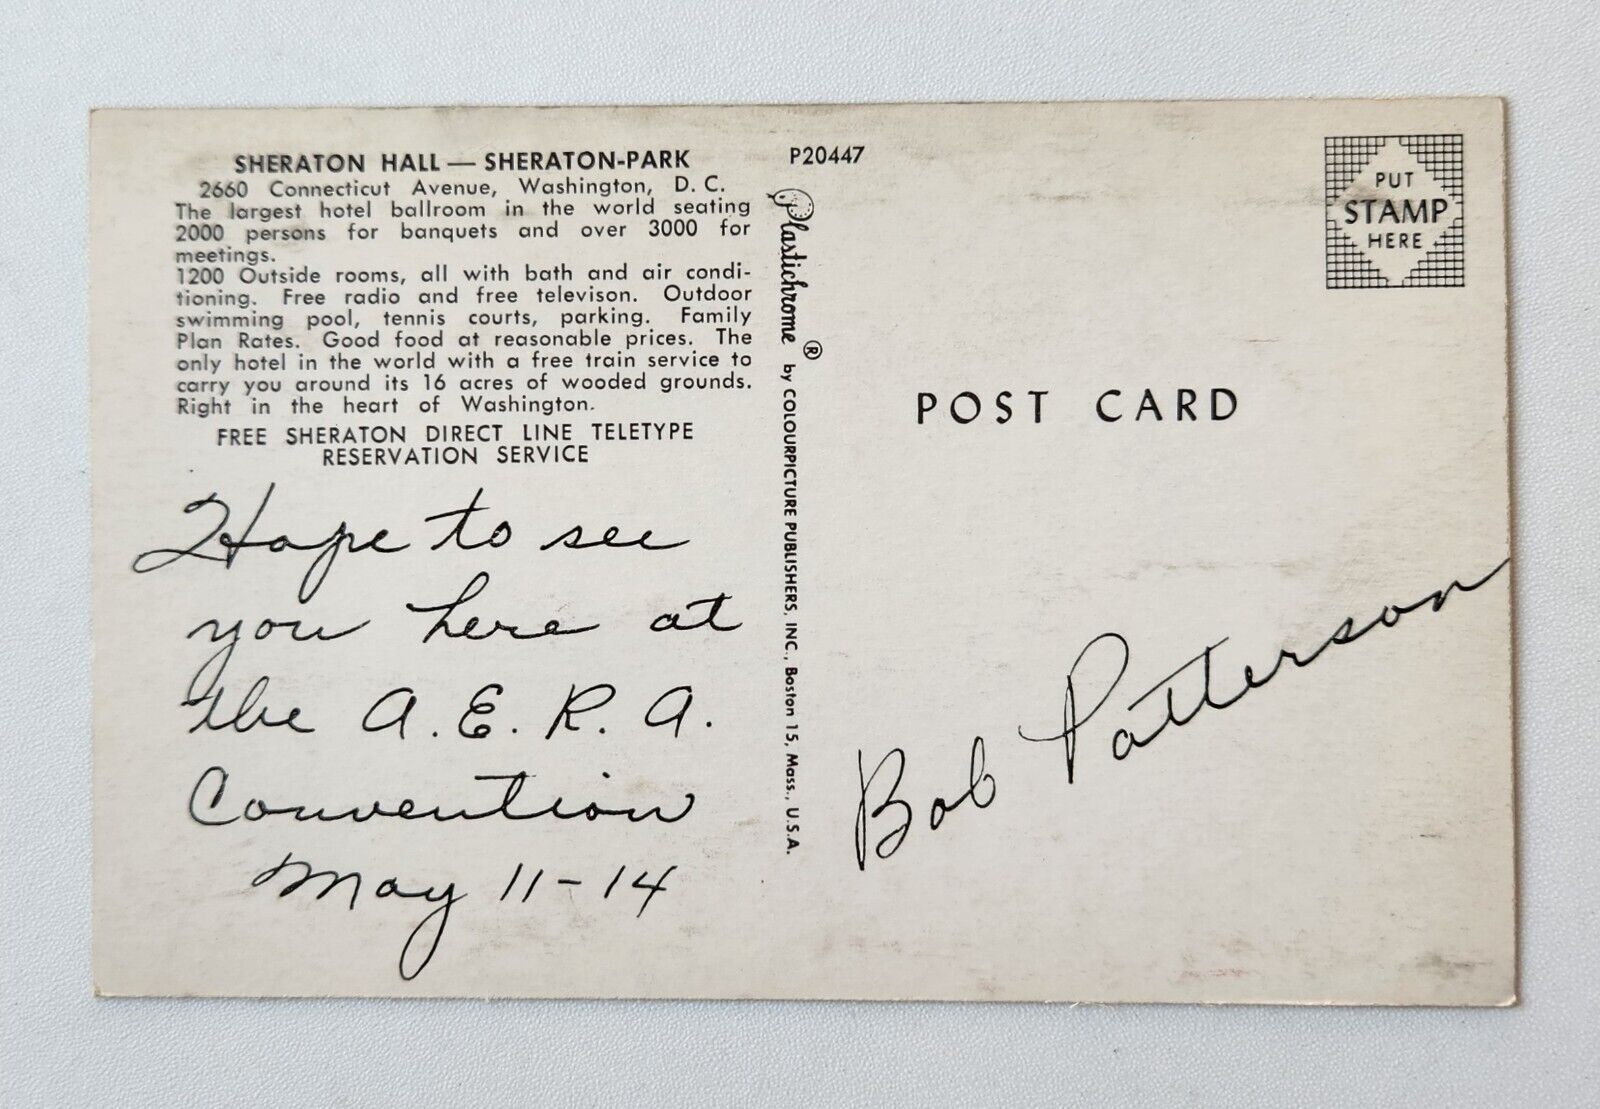 SHERATON HALL — SHERATON-PARK
2660 Connecticut Avenue, Washington, D. C.
The largest hotel ballroom in the world seating
2000 persons for banquets and over 3000 for
meetings.
1200 Outside rooms, all with bath and air condi-
tioning. Free radio and free televison. Outdoor
swimming pool, tennis courts, parking. Family
Plan Rates. Good food at reasonable prices. The
only hotel in the world with a free train service to
carry you around its 16 acres of wooded grounds.
Right in the heart of Washington.
FREE SHERATON DIRECT LINE TELETYPE
RESERVATION SERVICE
Hope to see
you here at
the A.E.R.A.
Convention
May 11-14
P20447
Plastichrome ® by COLOURPICTURE PUBLISHERS, INC., Boston 15, Mass., U.S.A.
PUT
STAMP
HERE
POST CARD
Bob Patterson